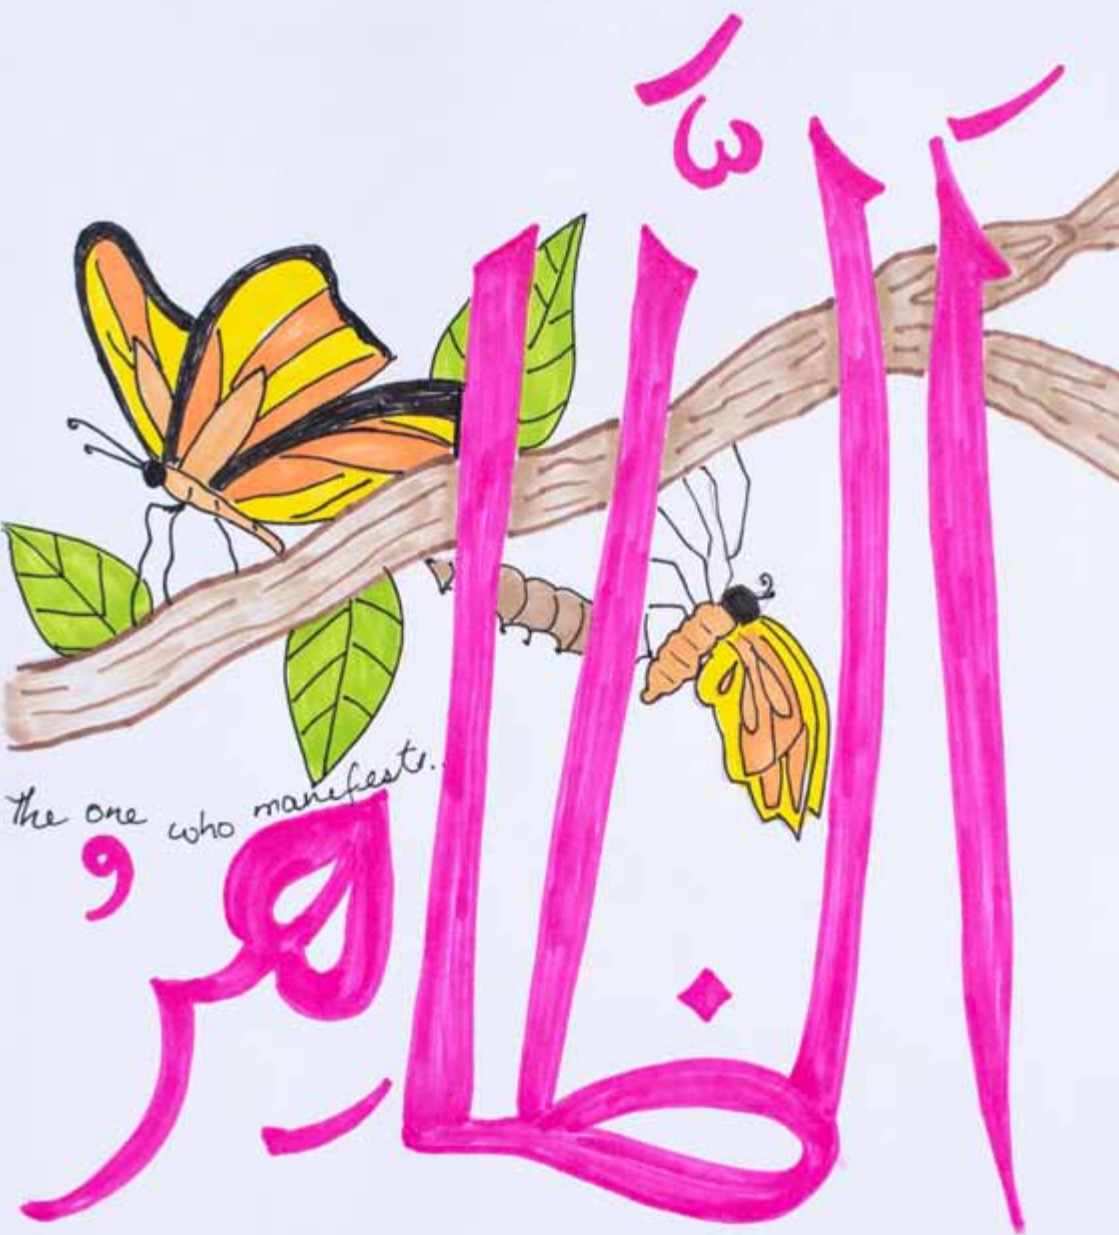 اَلظَّاهِرُ
The one who manifests..